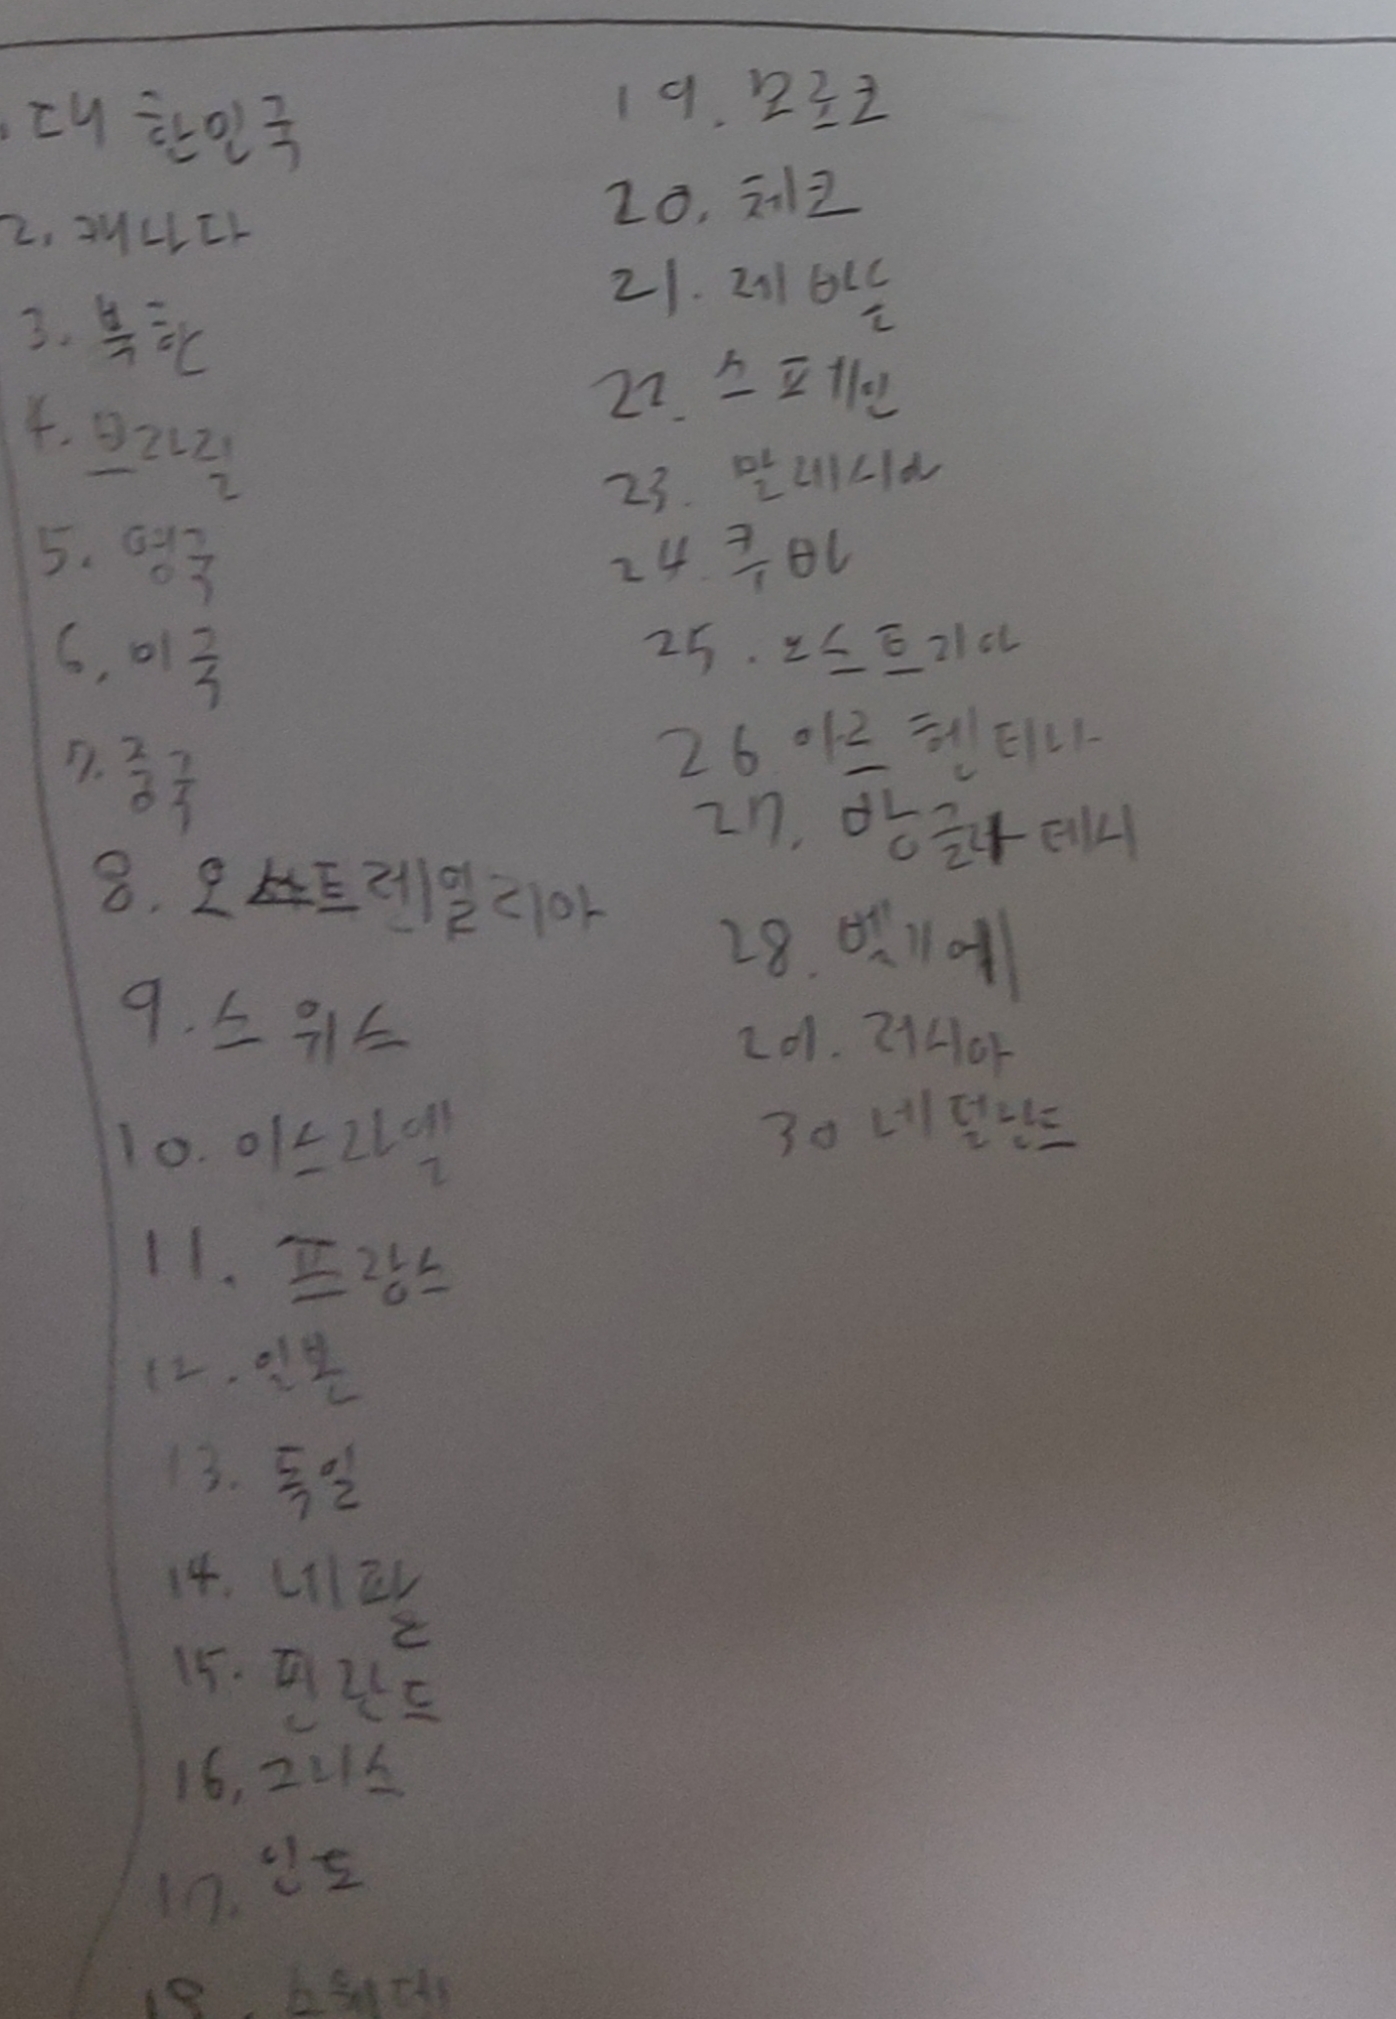 . 대한민국
2. 캐나다
3. 북한
4. 브라질
5. 영국
6. 미국
7. 중국
8. 오스트레일리아
9. 스위스
10. 이스라엘
11. 프랑스
12. 일본
13. 독일
14. 네팔
15. 핀란드
16. 그리스
17. 인도
18. 스웨덴
19. 모로코
20. 체코
21. 레바논
22. 스페인
23. 말레시아
24. 쿠바
25. 오스트리아
26 아르헨티나
27. 방글라데시
28. 벨기에
29. 러시아
30 네덜란드